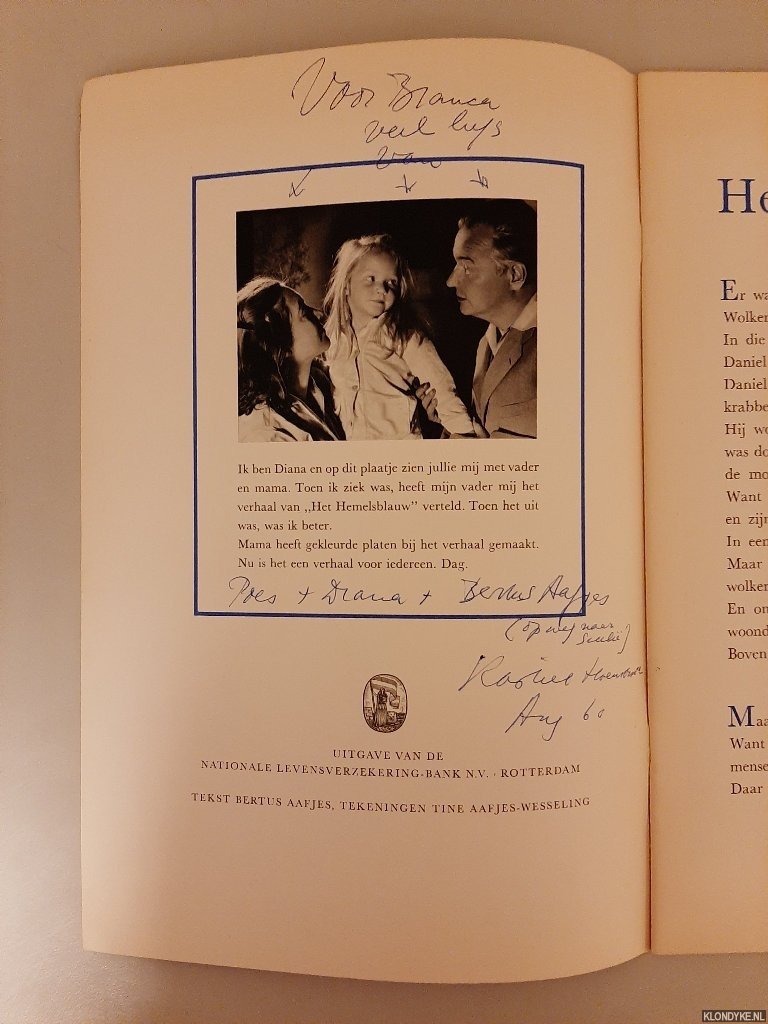 Voor Bianca
veel liefs
van
Ik ben Diana en op dit plaatje zien jullie mij met vader
en mama. Toen ik ziek was, heeft mijn vader mij het
verhaal van ,,Het Hemelsblauw” verteld. Toen het uit
was, was ik beter.
Mama heeft gekleurde platen bij het verhaal gemaakt.
Nu is het een verhaal voor iedereen. Dag.
Poes + Diana + Bertus Aafjes
(op weg naar
Kasteel
Aug 60
UITGAVE VAN DE
NATIONALE LEVENSVERZEKERING-BANK N.V. · ROTTERDAM
TEKST BERTUS AAFJES, TEKENINGEN TINE AAFJES-WESSELING
He
Er wa
Wolken
In die
Daniel
Daniel
krabbe
Hij wo
was do
de mo
Want
en zijn
In een
Maar
wolken
En on
woond
Boven
Maa
Want
mense
Daar
KLONDYKE.NL